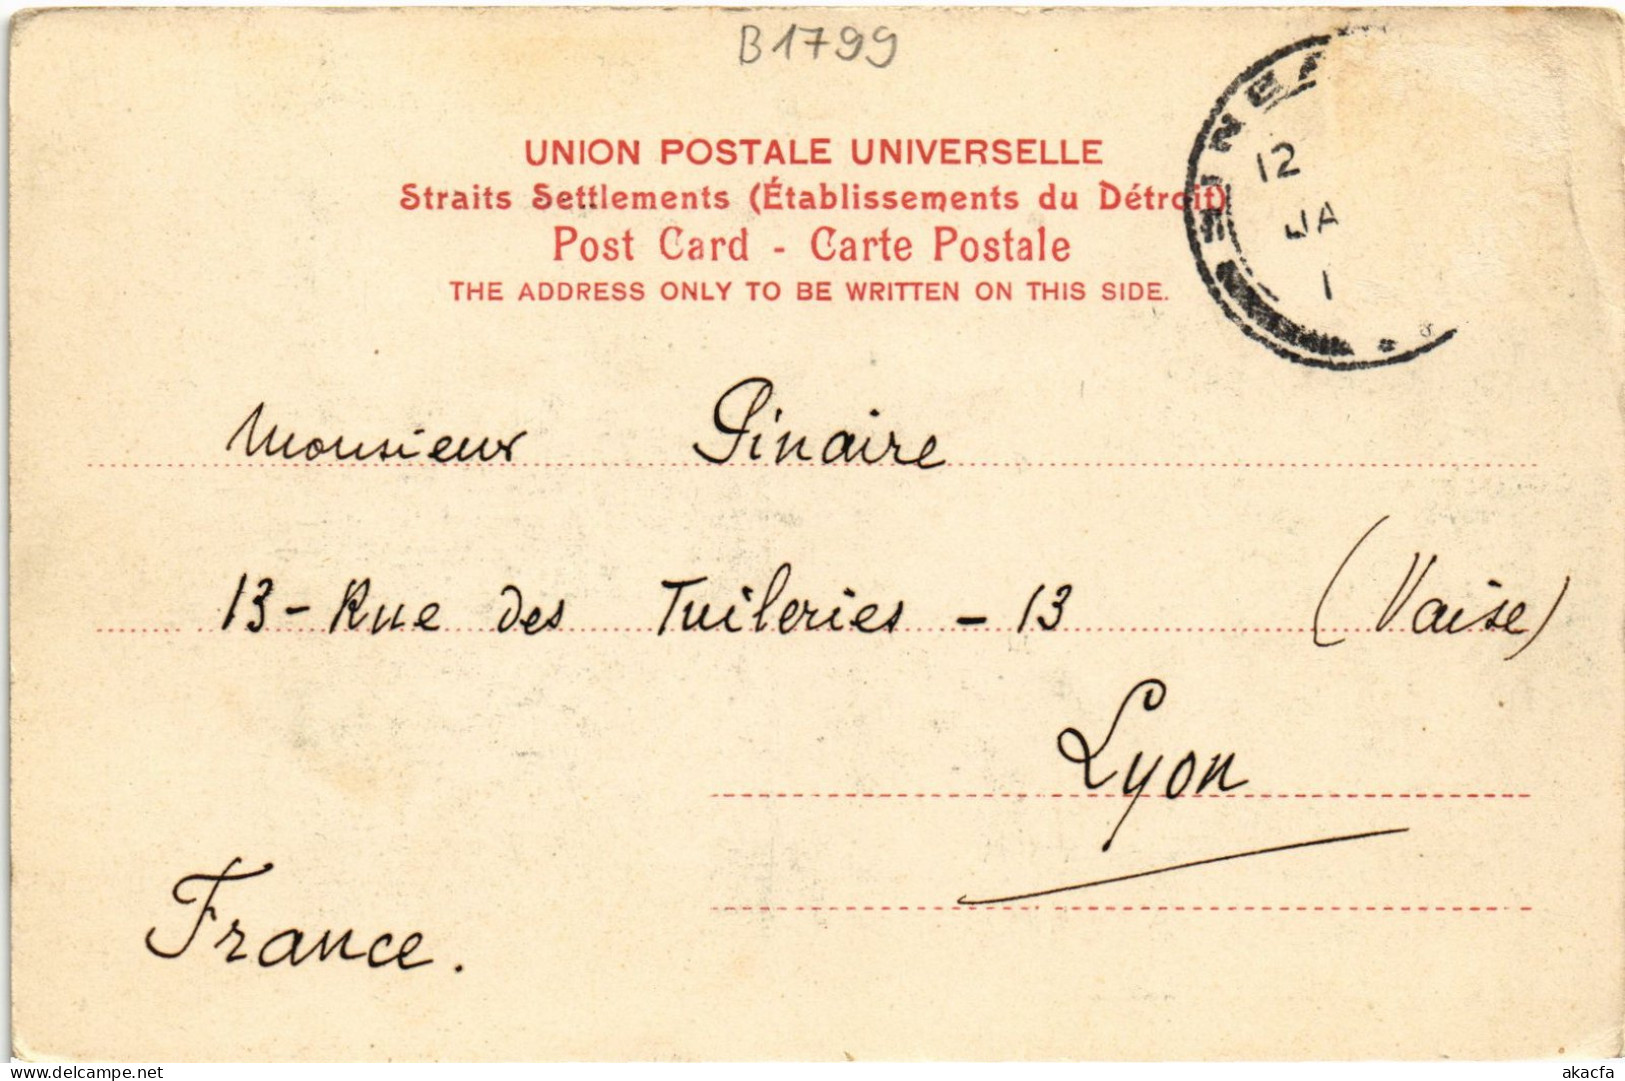 B1799
UNION POSTALE UNIVERSELLE
Straits Settlements (Établissements du Détroit)
Post Card - Carte Postale
THE ADDRESS ONLY TO BE WRITTEN ON THIS SIDE.
12
JA
1
Monsieur Pinaire
13 - Rue des Tuileries - 13 (Vaise)
Lyon
France.
akacfa